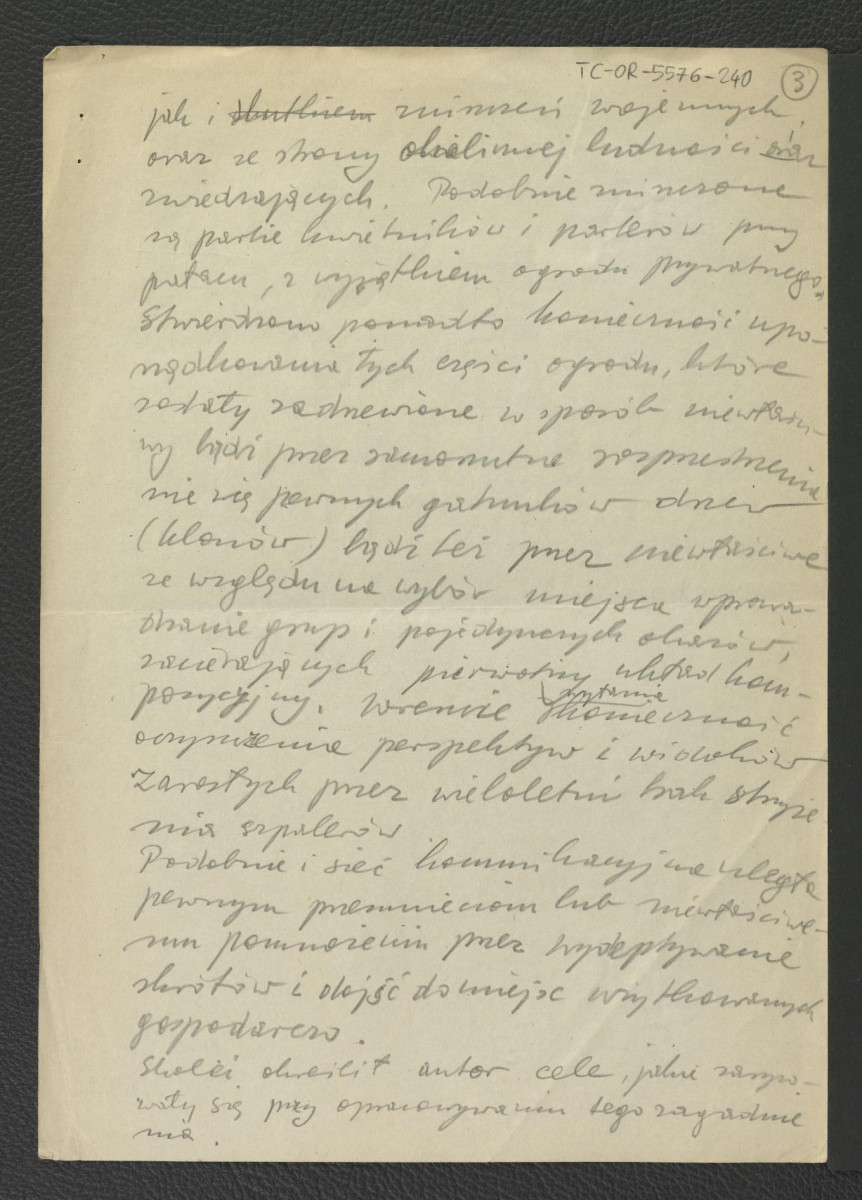 TC-OR-5576-240
3
jak i skutkiem zniszczeń wojennych,
oraz ze strony okolicznej ludności oraz
zwiedzających. Podobnie zniszczone
są partie kwietników i parterów przy
pałacu, z wyjątkiem ogrodu prywatnego.
Stwierdzono ponadto konieczność upo-
rządkowania tych części ogrodu, które
zostały zadrzewione w sposób niewłaści-
wy bądź przez samorzutne rozprzestrzenia
nie się pewnych gatunków drzew
(klonów) bądź też przez niewłaściwe
ze względu na wybór miejsca wprowa-
dzanie grup i pojedynczych okazów,
zacierających pierwotny układ kom-
pozycyjny. Wreszcie konieczność
oczyszczenia perspektyw i widoków
zarosłych przez wieloletni brak strzyże
nia szpalerów
Podobnie i sieć komunikacyjna uległa
pewnym przesunięciom lub niewłaściwe-
mu pomnożeniu przez wydeptywanie
skrótów i dojść do miejsc użytkowanych
gospodarczo.
Skolei określił autor cele, jakie zaryso-
wały się przy opracowywaniu tego zagadnie
nia.